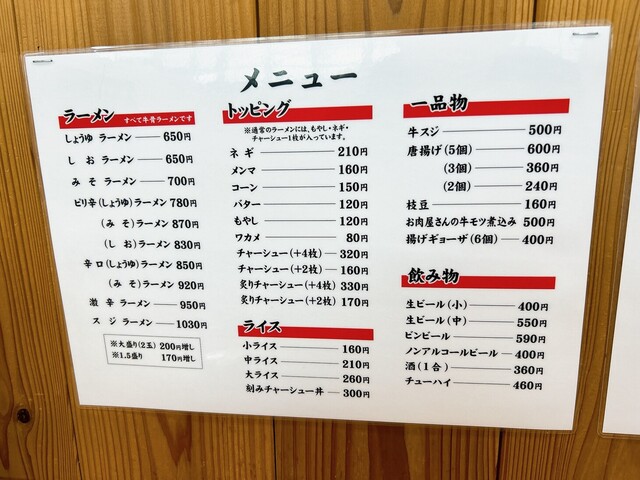 メニュー
ラーメン すべて牛骨ラーメンです
しょうゆ ラーメン 650円
しお ラーメン 650円
みそ ラーメン 700円
ピリ辛(しょうゆ)ラーメン 780円
(みそ)ラーメン 870円
(しお)ラーメン 830円
辛口(しょうゆ)ラーメン 850円
(みそ)ラーメン 920円
激辛 ラーメン 950円
スジ ラーメン 1030円
※大盛り(2玉) 200円増し
※1.5盛り 170円増し
トッピング
※通常のラーメンには、もやし・ネギ・
チャーシュー1枚が入っています。
ネギ 210円
メンマ 160円
コーン 150円
バター 120円
もやし 120円
ワカメ 80円
チャーシュー(+4枚) 320円
チャーシュー(+2枚) 160円
炙りチャーシュー(+4枚) 330円
炙りチャーシュー(+2枚) 170円
ライス
小ライス 160円
中ライス 210円
大ライス 260円
刻みチャーシュー丼 300円
一品物
牛スジ 500円
唐揚げ(5個) 600円
(3個) 360円
(2個) 240円
枝豆 160円
お肉屋さんの牛モツ煮込み 500円
揚げギョーザ(6個) 400円
飲み物
生ビール(小) 400円
生ビール(中) 550円
ビンビール 590円
ノンアルコールビール 400円
酒(1合) 360円
チューハイ 460円